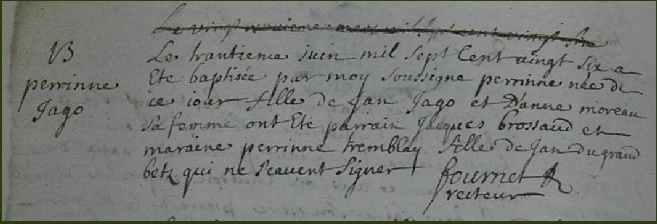 Le vingt neuvieme mil sept cent vingt six
B
perrinne
Jago
Le trantieme juin mil sept Cent vingt six a
Ete baptisée par moy soussigne perrinne née de
ce jour fille de jan Jago et D'anne moreau
sa femme ont Ete parrain Jacques brossaud et
maraine perrinne tremblay fille de jan du grand
betz qui ne scavent signer
fournet
recteur